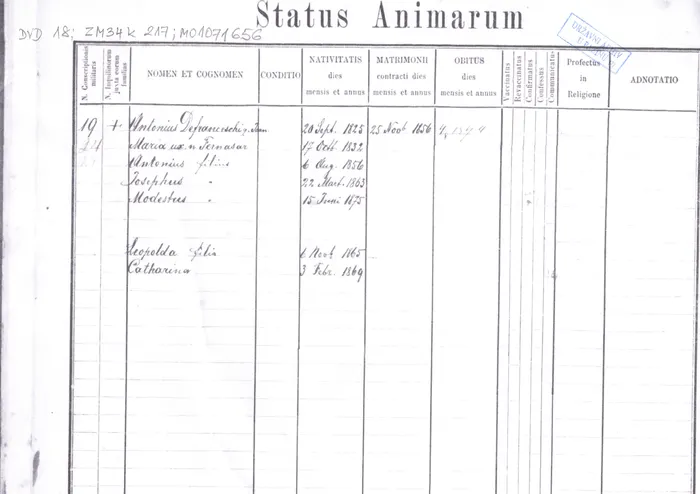 Status Animarum
DVD 18; ZM34k 217; M01071656
DRŽAVNI ARHIV
N. Conscriptionis militaris
N. Inquilinorum juxta eorum familias
NOMEN ET COGNOMEN
CONDITIO
NATIVITATIS dies mensis et annus
MATRIMONII contracti dies mensis et annus
OBITUS dies mensis et annus
Vaccinatus
Revaccinatus
Confirmatus
Confessus
Communicatus
Profectus in Religione
ADNOTATIO
19 + Antonius Defranceschi q. Ivan 20 Sept. 1825 25 Nov 1856
24 Maria ux. n 17 Octb 1832
Antonius filius 6 Aug. 1856
Josephus " 22 Mart. 1863
Modestus " 15 Juni 1875
Leopolda filia 6 1865
Catharina 3 Febr. 1869